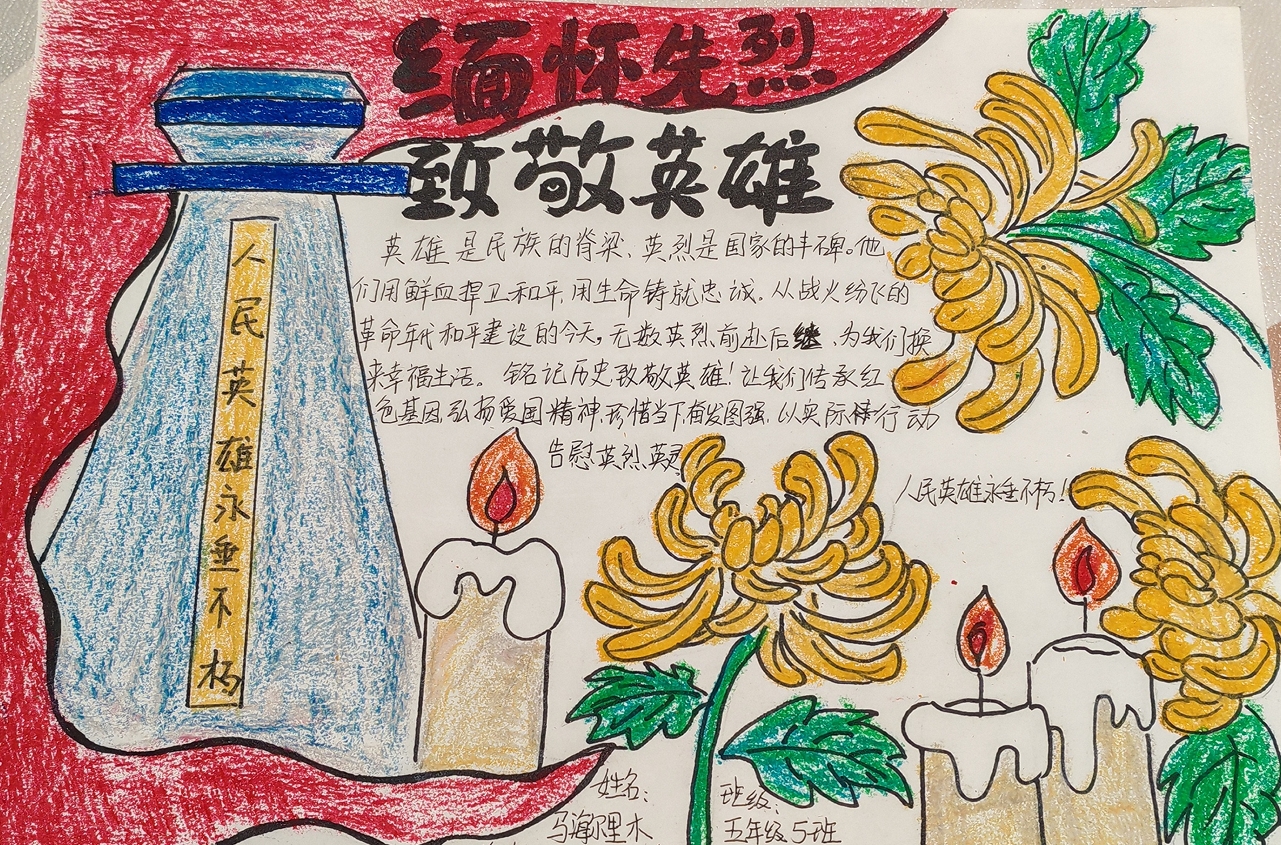 缅怀先烈
致敬英雄
人民英雄永垂不朽
英雄是民族的脊梁,英烈是国家的丰碑。他
们用鲜血捍卫和平,用生命铸就忠诚。从战火纷飞的
革命年代和平建设的今天,无数英烈前赴后继,为我们换
来幸福生活。铭记历史致敬英雄!让我们传承红
色基因,弘扬爱国精神,珍惜当下,奋发图强,以实际行动
告慰英烈英灵
人民英雄永垂不朽!
姓名:
班级:
马海尔里木
五年级5班